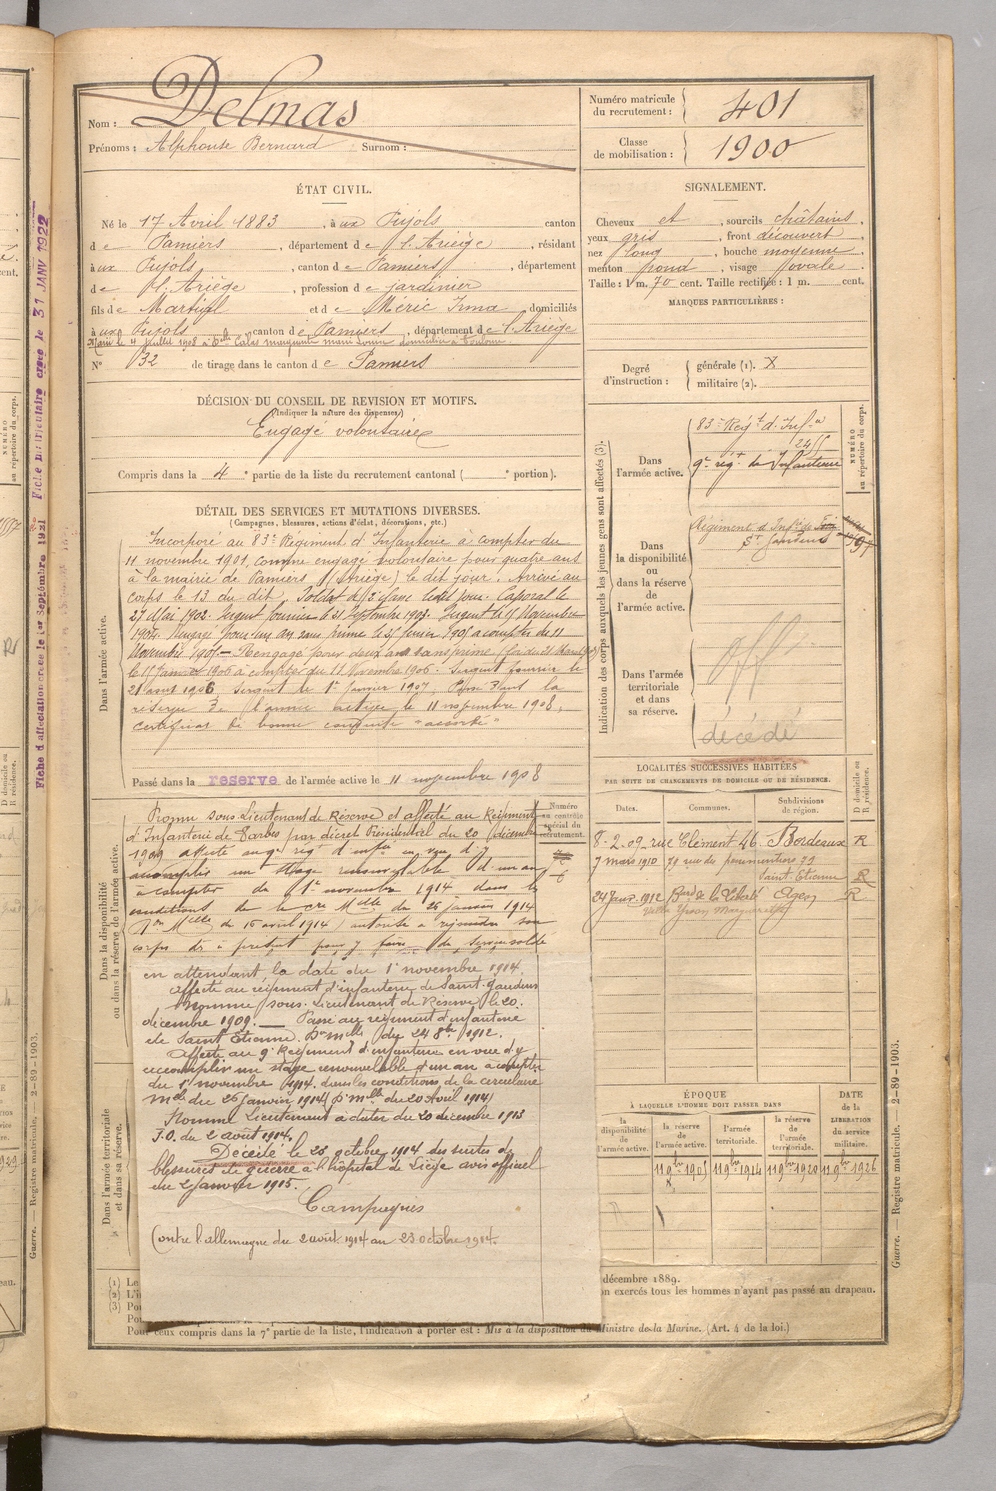 Nom : Delmas
Prénoms : Alphonse Bernard Surnom :
Numéro matricule du recrutement : 401
Classe de mobilisation : 1900
ÉTAT CIVIL.
Né le 17 Avril 1883, à ux Pujols canton
de Pamiers, département de l'Ariège, résidant
à ux Pujols, canton de Pamiers, département
de l'Ariège, profession de jardinier
fils de Martial et de Méric Irma, domiciliés
à ux Pujols canton de Pamiers, département de l'Ariège
Marié le 4 juillet 1908 à Delle Calas marguerite marie Louise domiciliée à Toulouse
N° 32 de tirage dans le canton de Pamiers
SIGNALEMENT.
Cheveux et, sourcils châtains,
yeux gris, front découvert,
nez long, bouche moyenne,
menton rond, visage ovale.
Taille : 1 m. 70 cent. Taille rectifiée : 1 m. cent.
MARQUES PARTICULIÈRES :
Degré d'instruction : générale (1). X
militaire (2).
DÉCISION DU CONSEIL DE REVISION ET MOTIFS.
(Indiquer la nature des dispenses)
Engagé volontaire
Compris dans la 4e partie de la liste du recrutement cantonal ( e portion).
DÉTAIL DES SERVICES ET MUTATIONS DIVERSES.
(Campagnes, blessures, actions d'éclat, décorations, etc.)
Dans l'armée active.
Incorporé au 83e Régiment d'Infanterie à compter du
11 novembre 1901, comme engagé volontaire pour quatre ans
à la mairie de Pamiers (Ariège) le dit jour. Arrivé au
corps le 13 du dit. Soldat de 2e classe ledit jour. Caporal le
27 Mai 1902. Sergent fourrier le 21 Septembre 1903. Sergent le 11 Novembre
1904. Rengagé pour un an sans prime le 25 février 1905 à compter du 11
Novembre 1905. Rengagé pour deux ans sans prime
le 11 Janvier 1906 à compter du 11 Novembre 1906. Sergent fourrier le
21 août 1906 Sergent le 1er Janvier 1907. Passé dans la
réserve de l'armée active le 11 novembre 1908.
certificat de bonne conduite "accordé"
Passé dans la reserve de l'armée active le 11 novembre 1908
Dans la disponibilité ou dans la réserve de l'armée active.
Numéro au contrôle spécial du recrutement.
Promu sous-Lieutenant de Réserve et affecté au Régiment
d'Infanterie de Tarbes par décret Présidentiel du 20 décembre
1909 affecté au 9e régt d'infie en vue d'y
accomplir un stage renouvelable d'un an
à compter du 1er novembre 1914 dans les
conditions de la cre Mlle du 26 janvier 1914
Don Mlle du 16 avril 1914) autorisé à rejoindre son
corps dès à présent pour y faire de service soldé
en attendant la date du 1er novembre 1914.
Affecté au régiment d'infanterie de Saint-Gaudens
Nommé sous-Lieutenant de Réserve le 20
décembre 1909. — Passé au régiment d'infanterie
de Saint Etienne. Don mlle du 24 8bre 1912.
Affecté au 9e Régiment d'infanterie en vue d'y
accomplir un stage renouvelable d'un an à compter
du 1er novembre 1914. dans les conditions de la circulaire
Mlle du 26 janvier 1914 (Don mlle du 20 Avril 1914)
Nommé Lieutenant à dater du 20 décembre 1913
J.O. du 2 août 1914.
Décédé le 23 octobre 1914 des suites de
blessures de guerre à l'hôpital de Liège avis officiel
du 2 janvier 1915.
Campagnes
Contre l'allemagne du 2 août 1914 au 23 octobre 1914.
Dans l'armée territoriale et dans sa réserve.
Indication des corps auxquels les jeunes gens sont affectés (3).
NUMÉRO au répertoire du corps.
Dans l'armée active.
83e Régt d'Infie
9e régt d'Infanterie
Dans la disponibilité ou dans la réserve de l'armée active.
Régiment d'Infie de
St Gaudens
Dans l'armée territoriale et dans sa réserve.
Off
décédé
LOCALITÉS SUCCESSIVES HABITÉES
PAR SUITE DE CHANGEMENTS DE DOMICILE OU DE RÉSIDENCE.
Dates. Communes. Subdivisions de région. D domicile ou R résidence.
8-2-09 rue Clément 46 Bordeaux R
7 mars 1910 Saint-Etienne R
24 Janv. 1912 Bard de la Liberté Agen R
ÉPOQUE
À LAQUELLE L'HOMME DOIT PASSER DANS
la disponibilité de l'armée active. la réserve de l'armée active. l'armée territoriale. la réserve de l'armée territoriale. DATE de la LIBÉRATION du service militaire.
11 9bre 1905 11 9bre 1914 11 9bre 1920 11 9bre 1926
(1) Le
(2) L'i
(3) Pou
décembre 1889.
on exercés tous les hommes n'ayant pas passé au drapeau.
Pour ceux compris dans la 7e partie de la liste, l'indication à porter est : Mis à la disposition du Ministre de la Marine. (Art. 4 de la loi.)
Guerre. — Registre matricule. 2-89-1903.
Guerre. — Registre matricule. 2-89-1903.
Fiche d'affectation créée le 1er Septembre 1921
créée le 31 JANV 1922